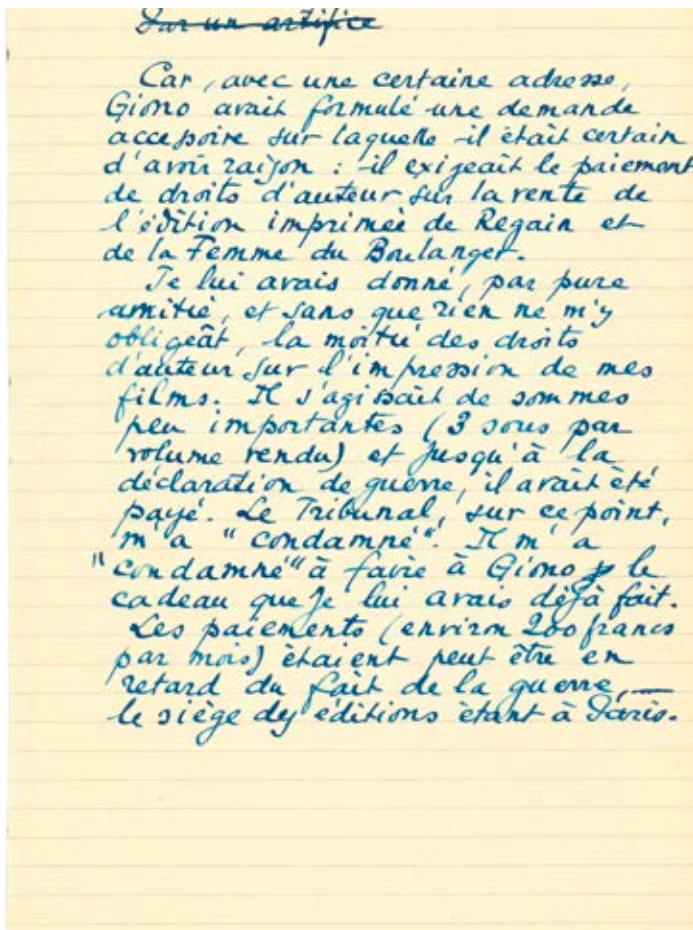 Par un artifice
Car, avec une certaine adresse,
Giono avait formulé une demande
accessoire sur laquelle il était certain
d'avoir raison : il exigeait le paiement
de droits d'auteur sur la vente de
l'édition imprimée de Regain et
de la Femme du Boulanger.
Je lui avais donné, par pure
amitié, et sans que rien ne m'y
obligeât, la moitié des droits
d'auteur sur l'impression de mes
films. Il s'agissait de sommes
peu importantes (3 sous par
volume vendu) et jusqu'à la
déclaration de guerre, il avait été
payé. Le Tribunal, sur ce point,
m'a "condamné". Il m'a
"condamné" à faire à Giono le
cadeau que je lui avais déjà fait.
Les paiements (environ 200 francs
par mois) étaient peut être en
retard du fait de la guerre, —
le siège des éditions étant à Paris.